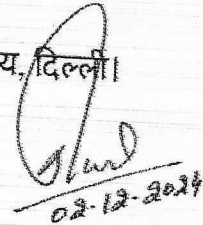 य, दिल्ली।
02-12-2024